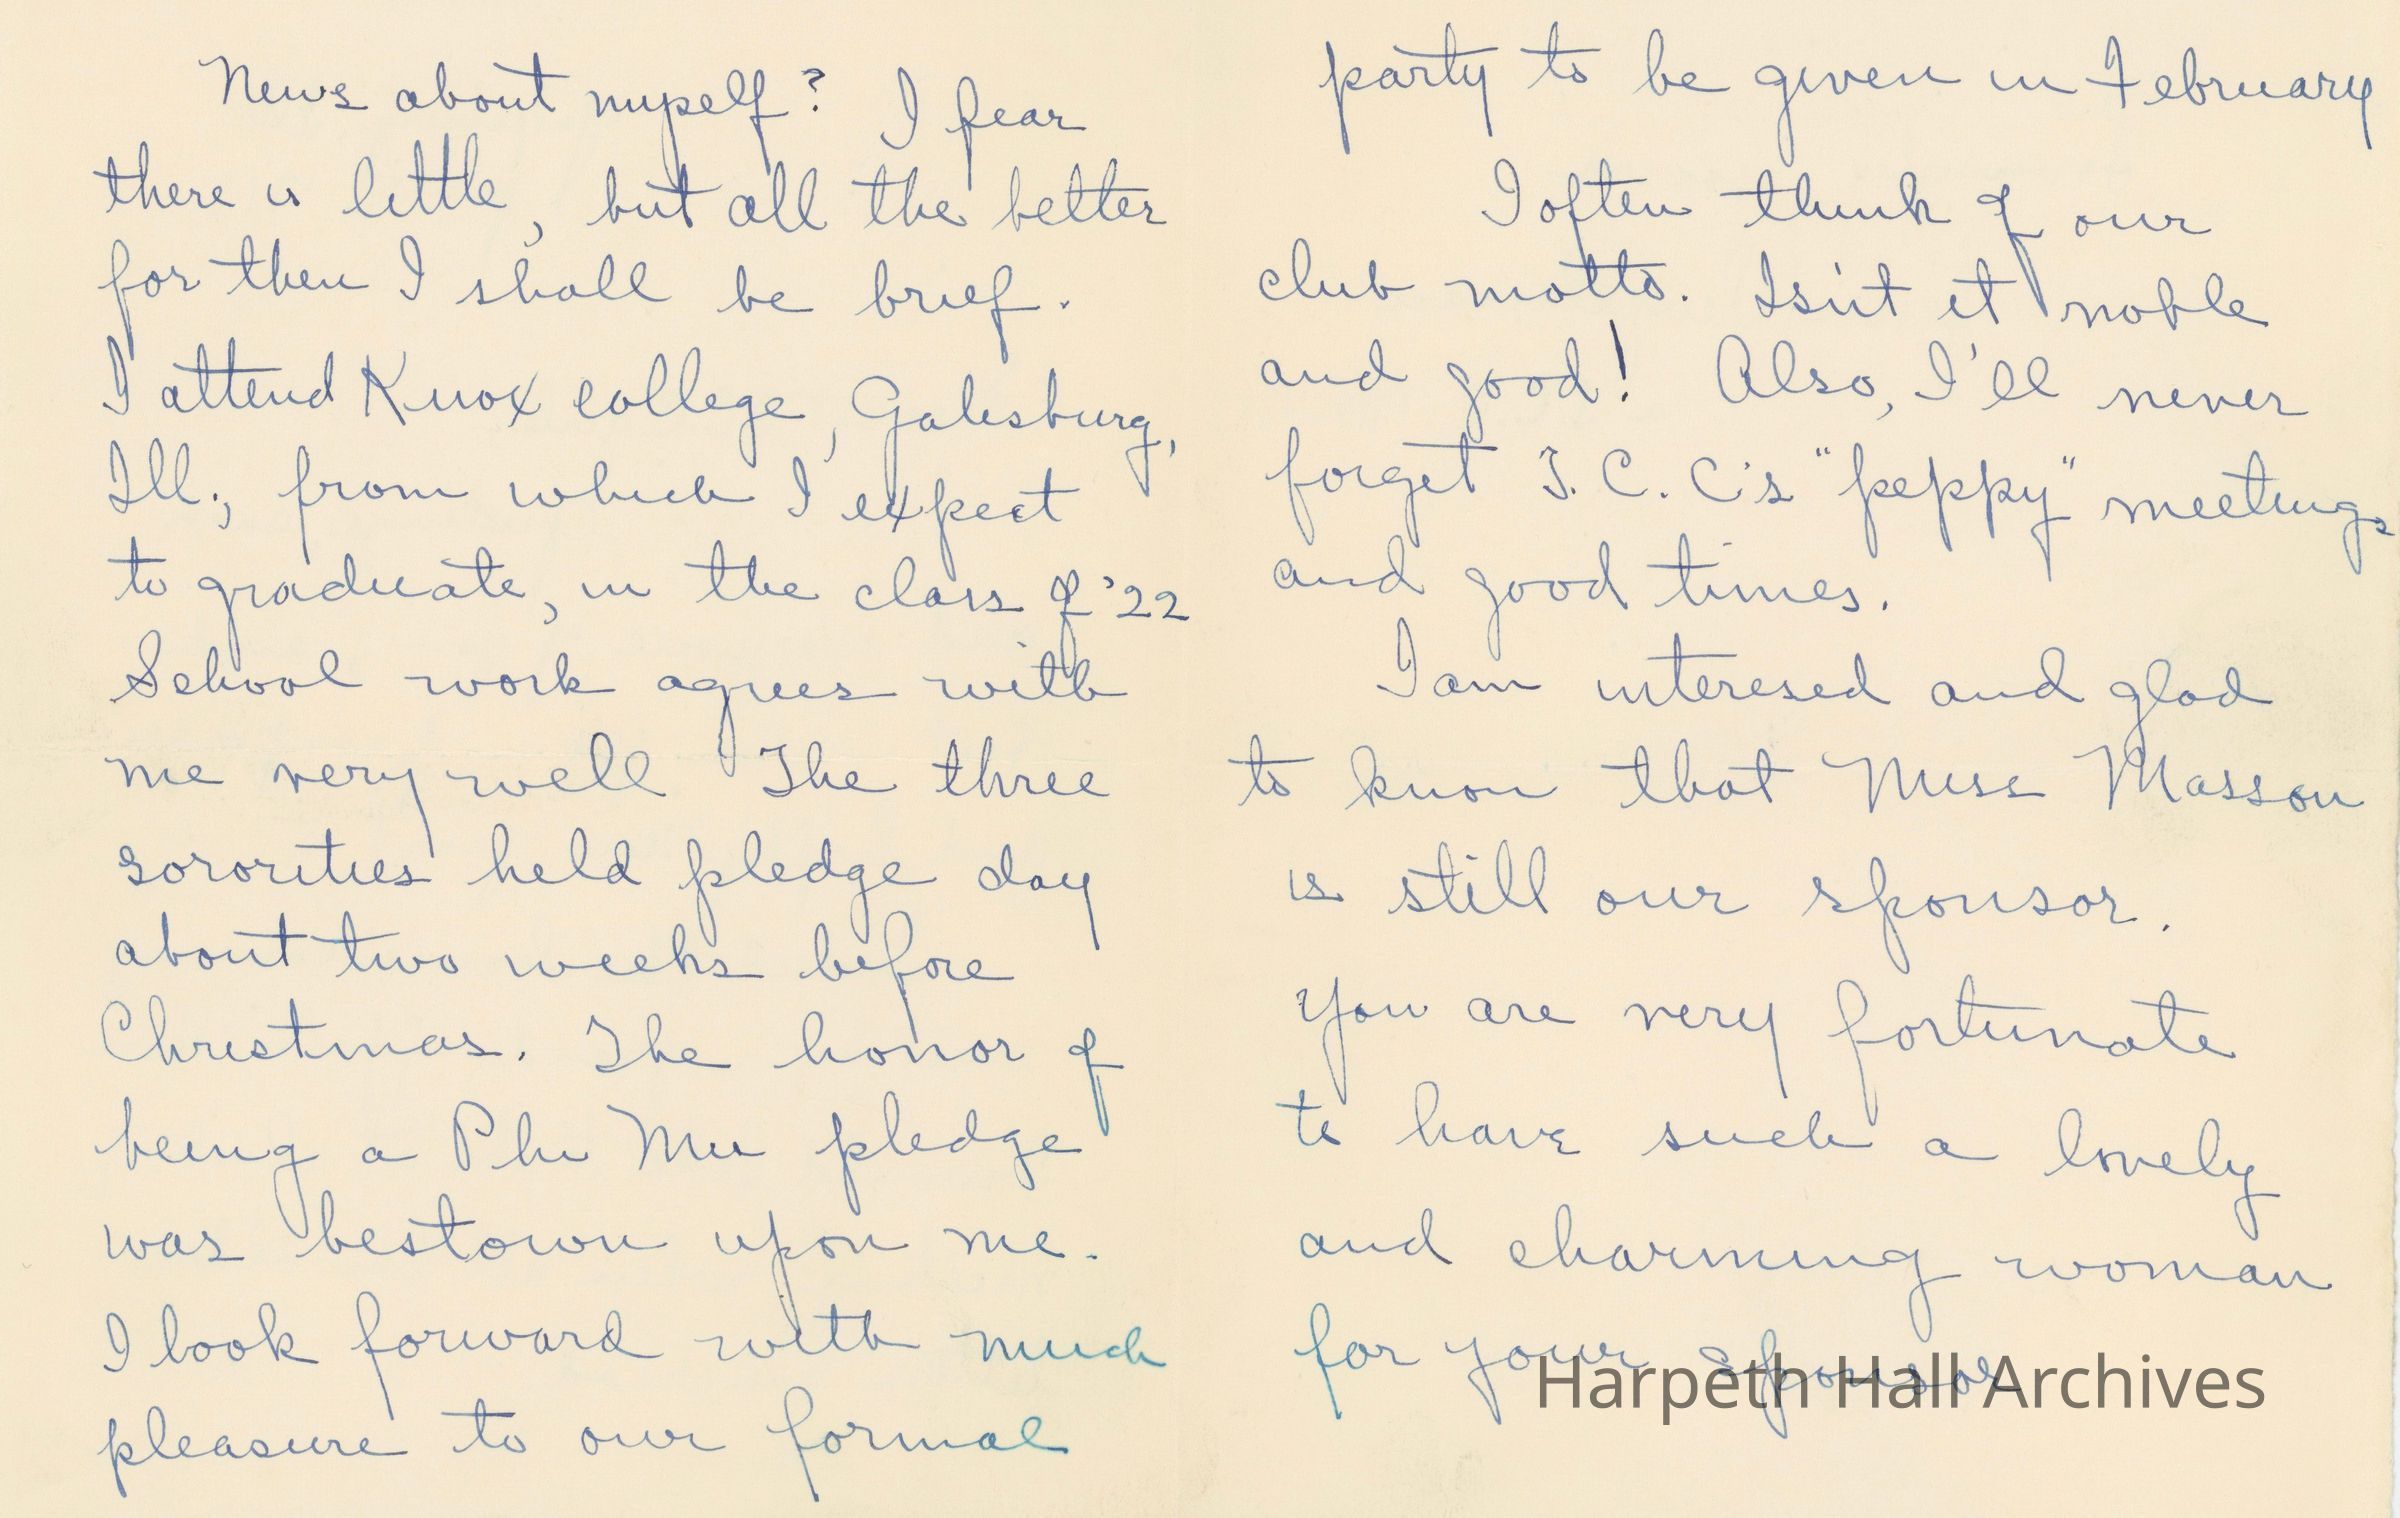 News about myself? I fear
there is little, but all the better
for then I shall be brief.
I attend Knox college, Galesburg,
Ill., from which I expect
to graduate, in the class of '22
School work agrees with
me very well The three
sororities held pledge day
about two weeks before
Christmas. The honor of
being a Phi Mu pledge
was bestown upon me.
I look forward with much
pleasure to our formal
party to be given in February
I often think of our
club motto. Isn't it noble
and good! Also, I'll never
forget T. C. C's "peppy" meetings
and good times.
I am interesed and glad
to know that Miss Masson
is still our sponsor.
You are very fortunate
to have such a lovely
and charming woman
for your sponsor
Harpeth Hall Archives